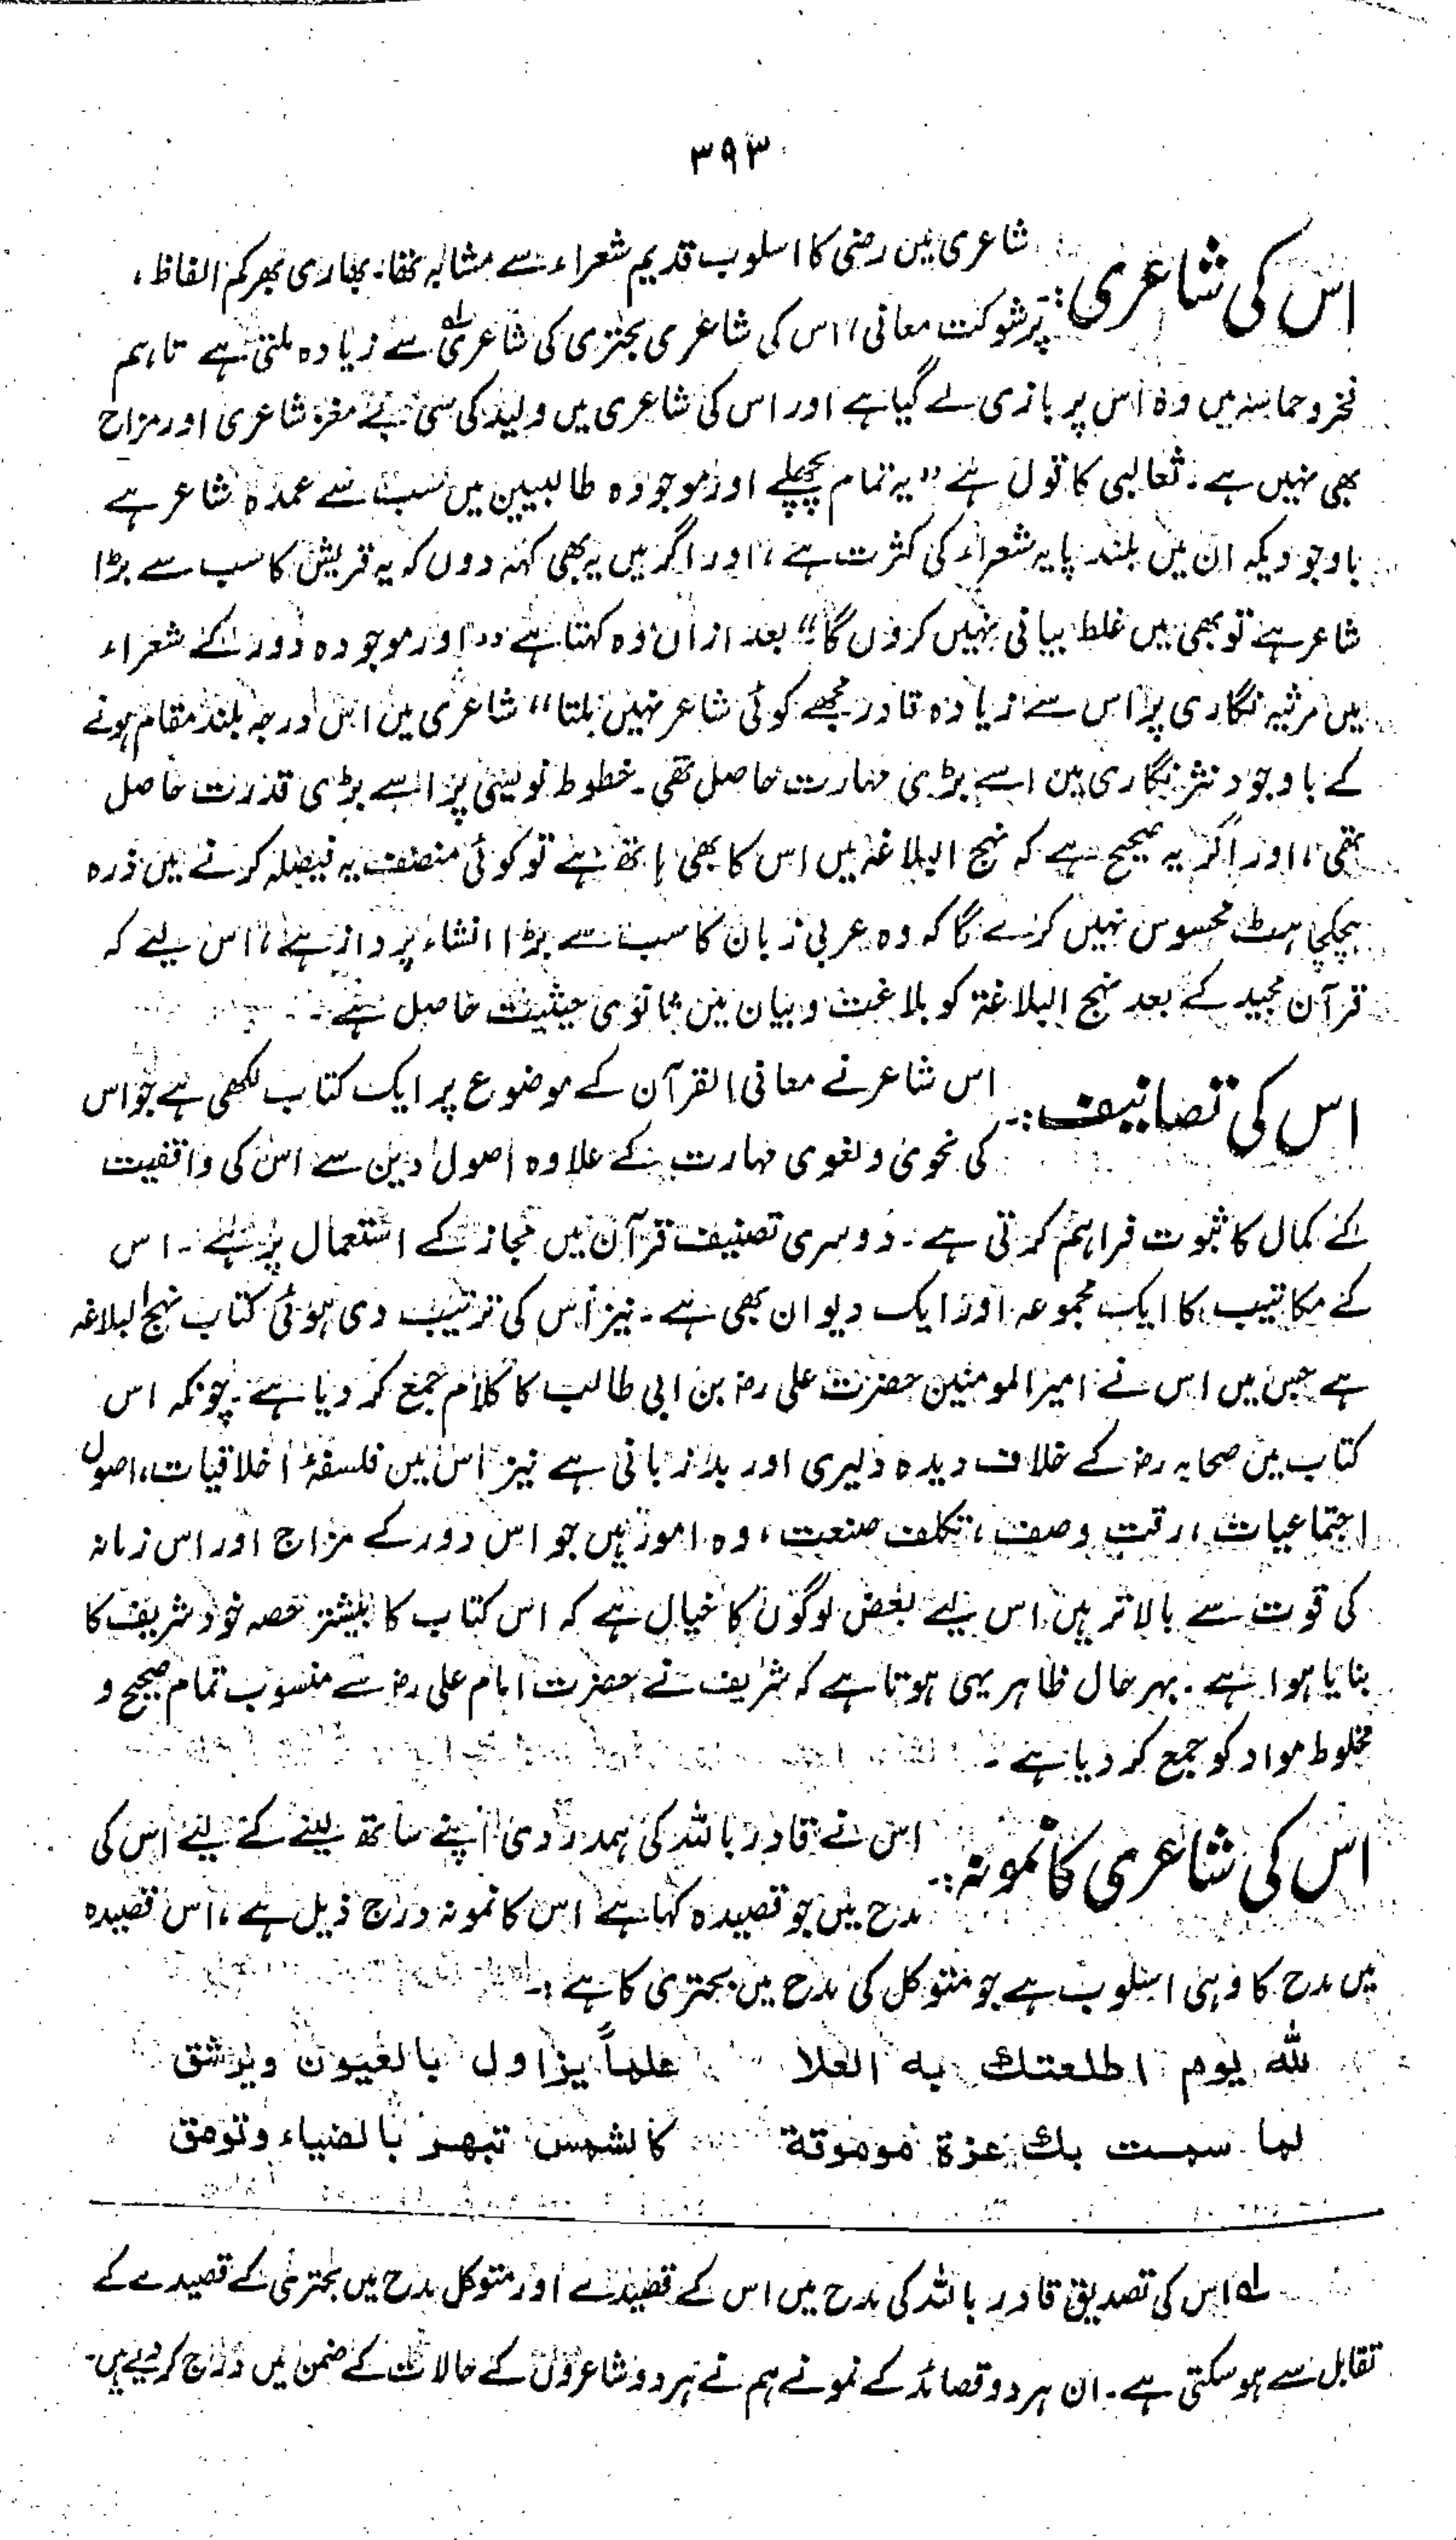 ۳۹۳
اس کی شاعری:
شاعری میں رضی کا اسلوب قدیم شعراء سے مشابہ تھا۔ بھاری بھرکم الفاظ،
پرشوکت معانی، اس کی شاعری بحتری کی شاعری لہ سے زیادہ ملتی ہے تاہم
فخر و حماسہ میں وہ اس پر بازی لے گیا ہے اور اس کی شاعری میں ولید کی سی بے مغز شاعری اور مزاح
بھی نہیں ہے۔ ثعالبی کا قول ہے "یہ تمام پچھلے اور موجودہ طالبیین میں سب سے عمدہ شاعر ہے
باوجودیکہ ان میں بلند پایہ شعراء کی کثرت ہے، اور اگر میں یہ بھی کہہ دوں کہ یہ قریش کا سب سے بڑا
شاعر ہے تو بھی میں غلط بیانی نہیں کروں گا" بعد ازاں وہ کہتا ہے "اور موجودہ دور کے شعراء
میں مرثیہ نگاری پر اس سے زیادہ قادر مجھے کوئی شاعر نہیں ملتا" شاعری میں اس درجہ بلند مقام ہونے
کے باوجود نثر نگاری میں اسے بڑی مہارت حاصل تھی۔ خطوط نویسی پر اسے بڑی قدرت حاصل
تھی، اور اگر یہ صحیح ہے کہ نہج البلاغہ میں اس کا بھی ہاتھ ہے تو کوئی منصف یہ فیصلہ کرنے میں ذرہ
ہچکچاہٹ محسوس نہیں کرے گا کہ وہ عربی زبان کا سب سے بڑا انشاء پرداز ہے، اس لیے کہ
قرآن مجید کے بعد نہج البلاغۃ کو بلاغت و بیان میں ثانوی حیثیت حاصل ہے۔
اس کی تصانیف:۔
اس شاعر نے معانی القرآن کے موضوع پر ایک کتاب لکھی ہے جو اس
کی نحوی و لغوی مہارت کے علاوہ اصول دین سے اس کی واقفیت
کے کمال کا ثبوت فراہم کرتی ہے۔ دوسری تصنیف قرآن میں مجاز کے استعمال پر ہے۔ اس
کے مکاتیب کا ایک مجموعہ اور ایک دیوان بھی ہے۔ نیز اس کی ترتیب دی ہوئی کتاب نہج البلاغہ
ہے جس میں اس نے امیر المومنین حضرت علی رضہ بن ابی طالب کا کلام جمع کر دیا ہے۔ چونکہ اس
کتاب میں صحابہ رضہ کے خلاف دیدہ دلیری اور بدزبانی ہے نیز اس میں فلسفۂ اخلاقیات، اصول
اجتماعیات، رقت وصف، تکلف صنعت، وہ امور ہیں جو اس دور کے مزاج اور اس زمانہ
کی قوت سے بالاتر ہیں اس لیے بعض لوگوں کا خیال ہے کہ اس کتاب کا بیشتر حصہ خود شریف کا
بنایا ہوا ہے۔ بہر حال ظاہر یہی ہوتا ہے کہ شریف نے حضرت امام علی رضہ سے منسوب تمام صحیح و
مخلوط مواد کو جمع کر دیا ہے۔
اس کی شاعری کا نمونہ:۔
اس نے قادر باللہ کی ہمدردی اپنے ساتھ لینے کے لیے اس کی
مدح میں جو قصیدہ کہا ہے اس کا نمونہ درج ذیل ہے، اس قصیدہ
میں مدح کا وہی اسلوب ہے جو متوکل کی مدح میں بحتری کا ہے:۔
للہ یوم اطلعتك بہ العلا علماً یزاول بالعیون ویرشق
لما سمت بك عزۃ موموقۃ کالشمس تبھر بالضیاء وتومق
لہ اس کی تصدیق قادر باللہ کی مدح میں اس کے قصیدے اور متوکل مدح میں بحتری کے قصیدے کے
تقابل سے ہو سکتی ہے۔ ان ہر دو قصائد کے نمونے ہم نے ہر دو شاعروں کے حالات کے ضمن میں درج کر دیے ہیں۔